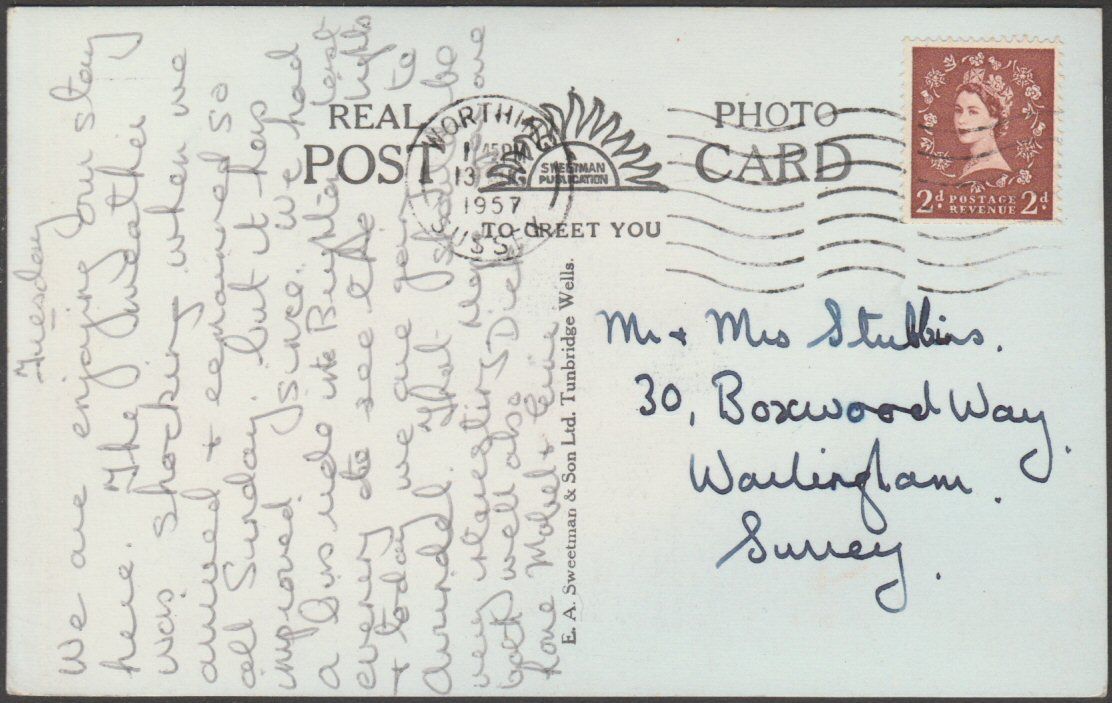 REAL PHOTO
POST CARD
SWEETMAN
PUBLICATION
TO GREET YOU
WORTHING
1 45 PM
13
1957
SUSSEX
2d POSTAGE REVENUE 2d
E. A. Sweetman & Son Ltd. Tunbridge Wells.
Tuesday
We are enjoying our stay
here. The weather
was shocking when we
arrived & remained so
all Sunday, but it has
improved since. We had
a bus ride into Brighton last
evening to see the lights
& today we are going to
Arundel. That should be
very interesting. Hope you are
both well also Dick.
Love Mabel & Ernie
Mr & Mrs Stubbins.
30, Boxwood Way.
Warlingham.
Surrey.